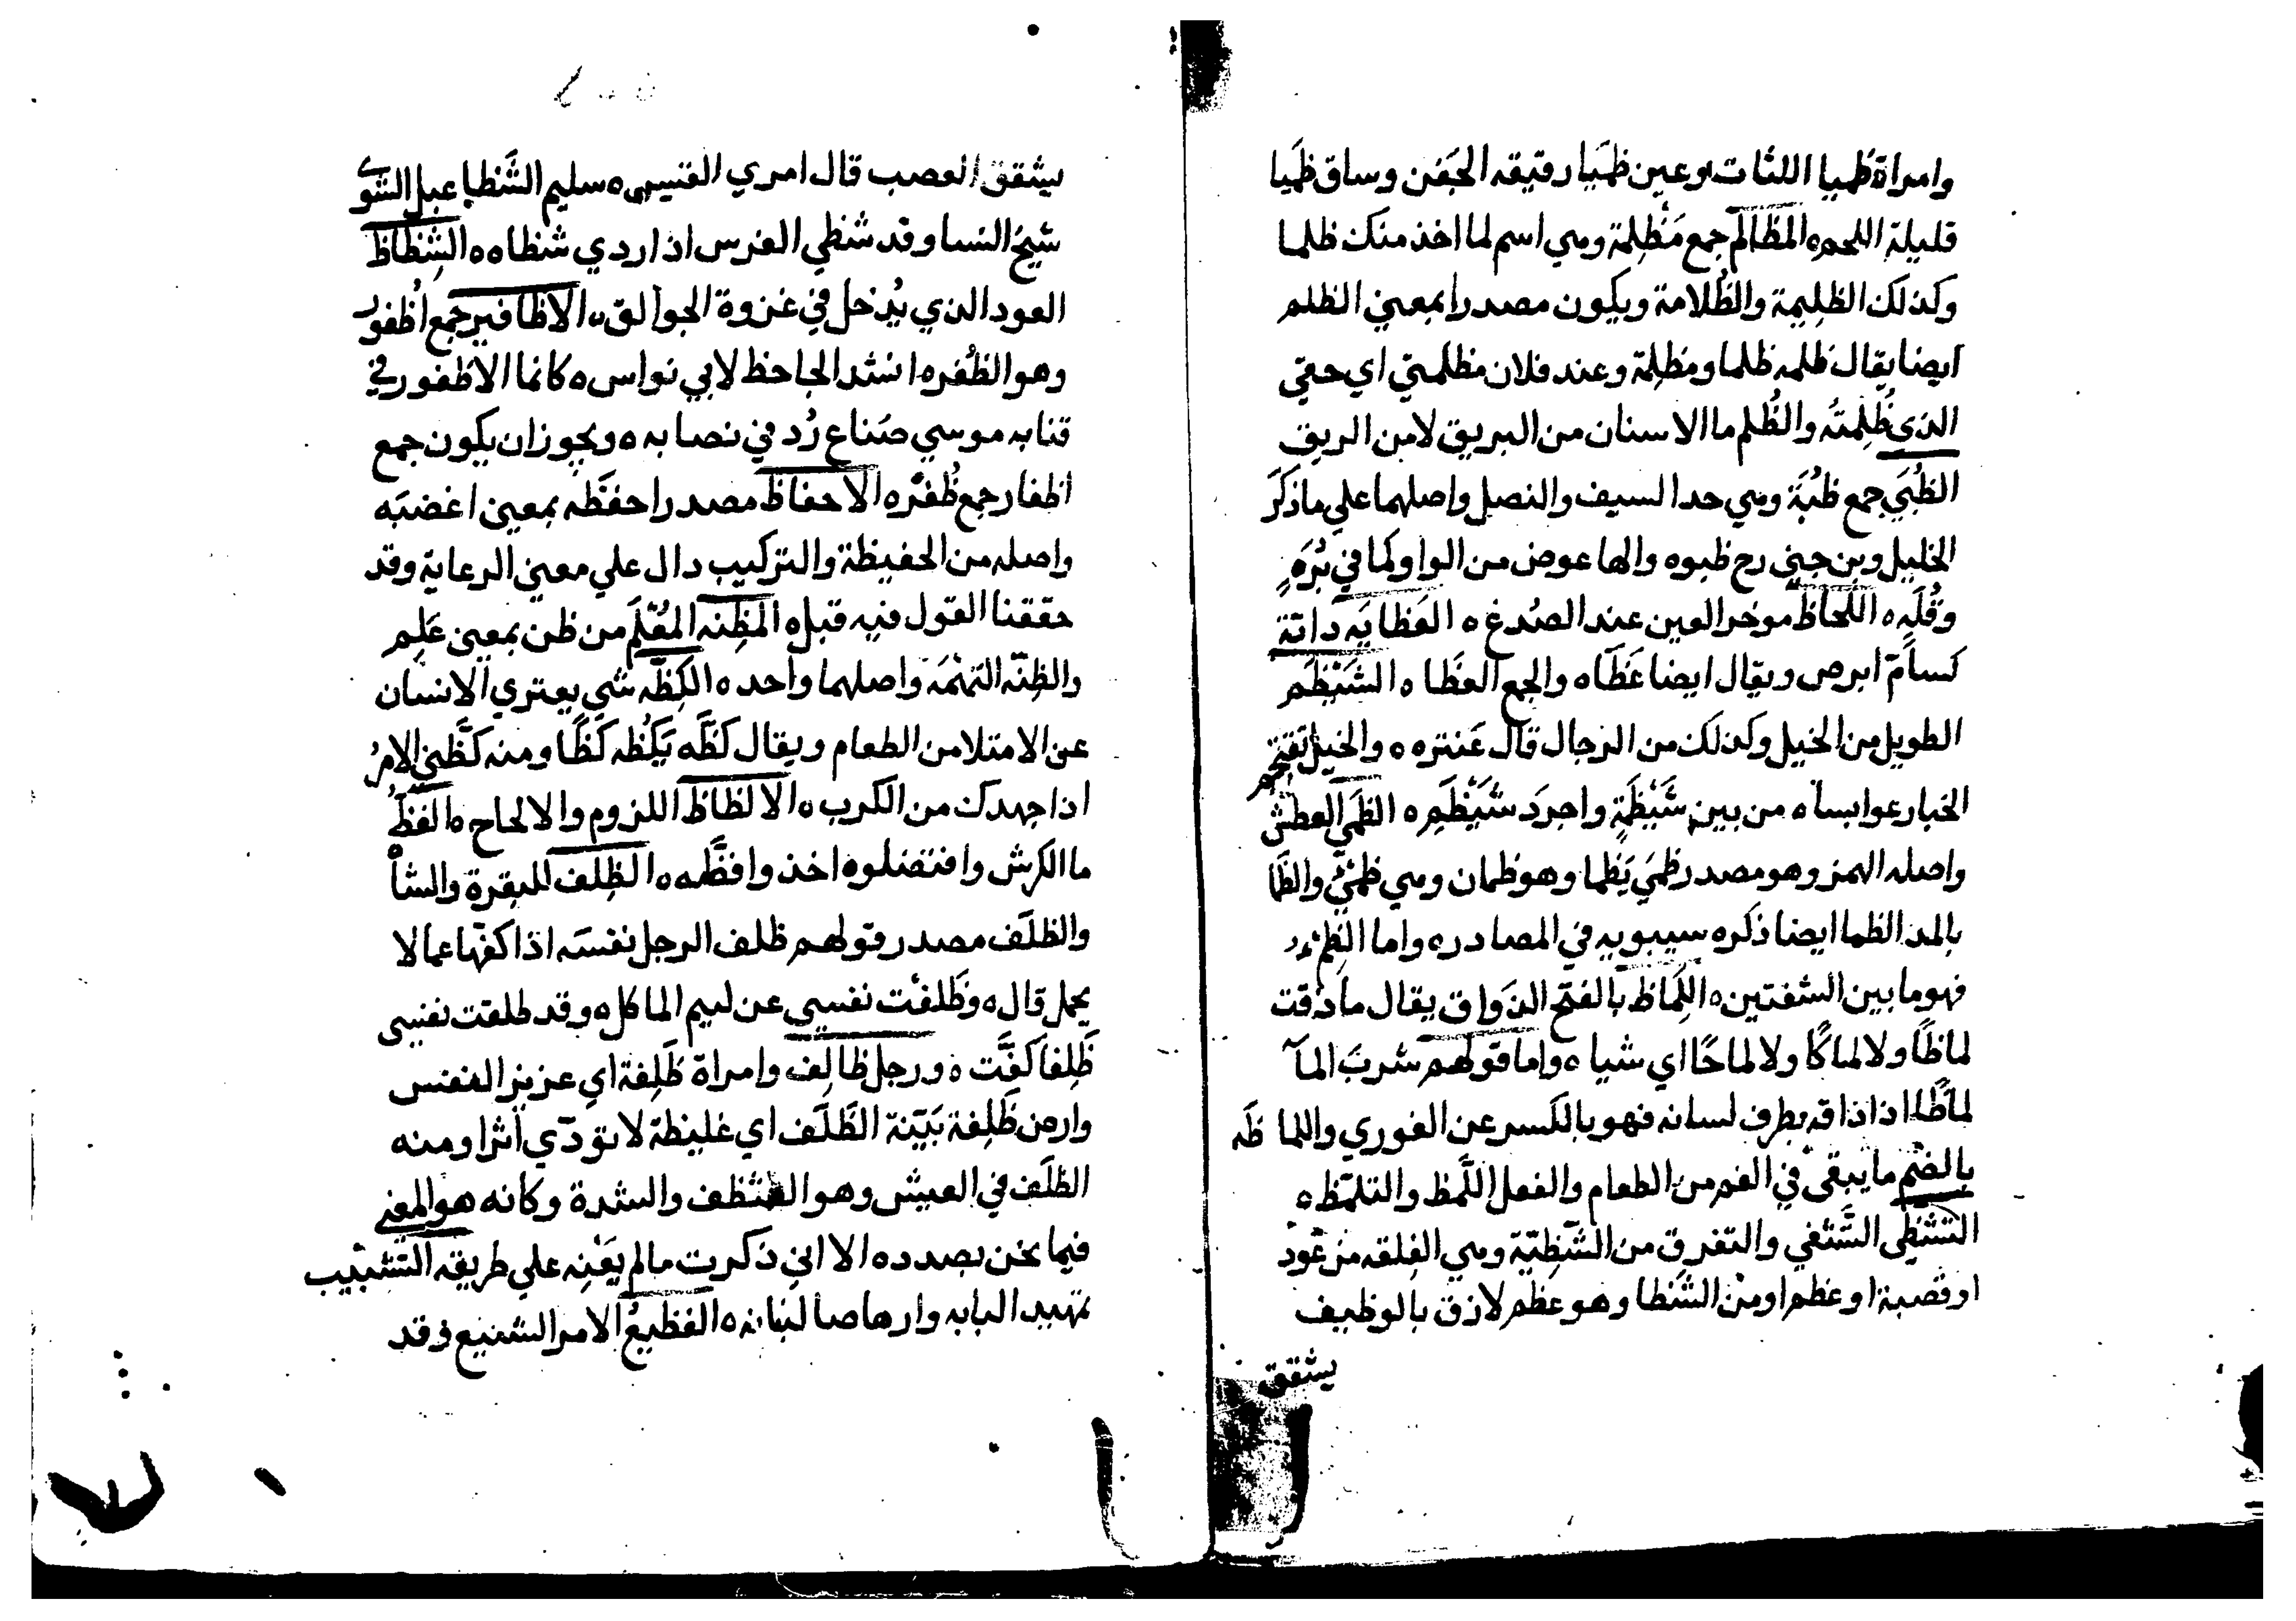 وامراة ظميا اللثات وعين ظميا رقيقه الجفن وساق ظميا
قليلة اللحم ه المظالم جمع مَظْلِمة وهي اسم لما اخذ منك ظلما
وكذلك الظلِيمة والظُلامة ويكون مصدرا بمعني الظلم
ايضا يقال ظلمه ظلما ومظلِمة وعند فلان مظلمتي اي حقي
الذي ظُلِمتُه والظُلم ما الاسنان من البريق لا من الريق
الظُبَي جمع ظُبَة وهي حد السيف والنصل واصلهما علي ما ذكَرَ
الخليل وبن جني رح ظبوه والها عوض من الواو كما في بُرَهٍ
وقُلَه ه اللحاظ موخر العين عند الصُدغ ه العَظايَه دابّة
كسامّ ابرص ويقال ايضا عَظَاه والجمع العظَا ه الشَيْظَم
الطويل من الخيل وكذلك من الرجال قال عَنتره ه والخيل تقتحم
الخبار عوابسا ه من بين شَيْظَمةٍ واجرَد شَيْظَمِ ه الظمَي العطش
واصله الهمز وهو مصدر ظمَي يَظما وهو ظمان وهي ظمئي والظَا
بالمد الظما ايضا ذكره سيبويه في المصادر ه واما الظِمْءُ
فهو ما بين الشفتين ه اللِمَاظ بالفتح الذَواق يقال ما ذقت
لماظًا ولا لماكًا ولا لماحًا اي شيا ه واما قولهم شربَ المآ
لماظًا اذا ذاقه بطرف لسانه فهو بالكسر عن الغوري واللماظَه
بالضم ما يبقي في الفم من الطعام والفعل اللَّمظ والتلمّظ ه
التشَظِي التَّشَقي والتفرق من الشَظِيّة وهي الفِلقه من عُود
او قصبة او عظم او من الشَظا وهو عظم لازق بالوظيف
يشقق
يشقق العصب قال امري القيس ه سليم الشَّظا عبل الشوي
شيخ النسا وقد شظي الفرس اذا ردي شظاه ه الشِظاظ
العود الذي يُدخل في عروة الجوالق ه الاظافير جمع اُظفور
وهو الظُفره انشد الجاحظ لابي نواس ه كانما الاظفور في
قنابه موسي صَناع رُد في نصابه ه ويجوز ان يكون جمع
اظفار جمع ظُفُره الاحفاظ مصدر احفَظَه بمعني اغضبَه
واصله من الحفيظة والتركيب دال علي معني الرعاية وقد
حققنا القول فيه قبل ه المظِنه المُعْلَم من ظن بمعني عَلِم
والظِنّه التهْمَة واصلهما واحد ه الكِظّه شي يعتري الانسان
عن الامتلا من الطعام ويقال كظَّه يَكُظه كَظًا ومنه كَظَّني الامرُ
اذا جهدك من الكرب ه الالظاظ اللزوم والالحاح ه الفَظّ
ما الكرش وافتضلوه اخذوا فظَّه ه الظِلف للبقرة والشا
والظلَف مصدر قولهم ظلف الرجل نفسَه اذا كفّها عمّا لا
يحمل قال ه وظَلفْت نفسي عن لييم الماكل ه وقد ظلفت نفسي
ظَلِفًا كفَّت ه ورجل ظالِف وامراة ظَلِفة اي عزيز النفس
وارض ظَلِفة بَيّنة الظَلَف اي غليظة لا تودّي اثرا ومنه
الظلَف في العيش وهو الشظف والشدة وكانه هو المعني
فيما نحن بصدده الا اني ذكرت ما لم يَعْنِه علي طريقه التشبيب
تمهيد البابه وارهاصا لبنانه ه الفظيعُ الامر الشنيع وقد